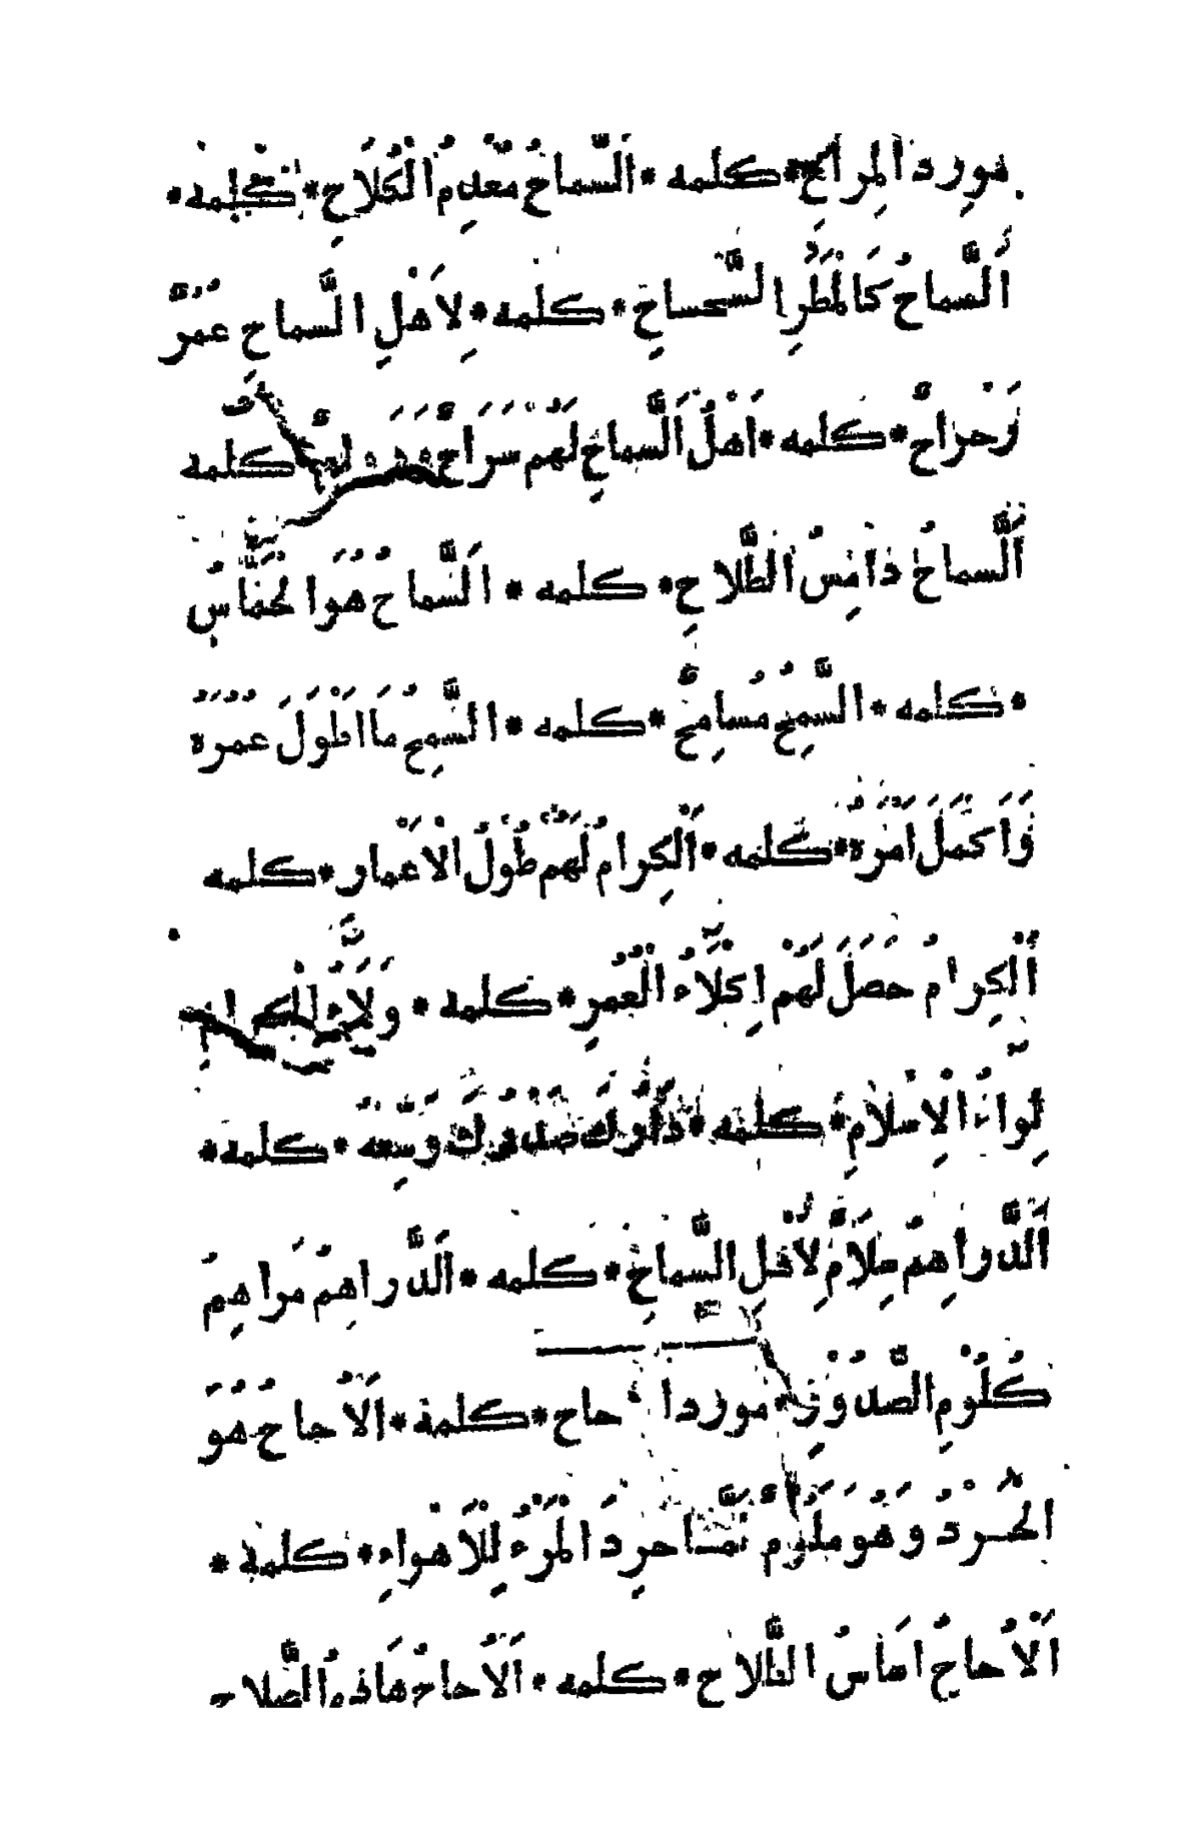 مورد المراح * كلمه * اَلسَّماحُ مُعْدِمُ الْكُلَاحِ * كلمه *
اَلسَّماحُ كَالْمَطَرِ السَّحساحِ * كلمه * لِاَهْلِ السَّماحِ عمرٌ
رَحراحٌ * كلمه * اَهْلُ السَّماحِ لَهُم سَرَاحٌ كلمه
اَلسماحُ دامِسُ الطَّلاحِ * كلمه * اَلسَّماحُ هُوَ الحمّاسُ
* كلمه * السَّمِحُ مُسامِحٌ * كلمه * السَّمِحُ مَا اَطْوَلَ عمُرَهُ
وَاَكمَلَ اَمْرَهُ * كلمه * اَلْكِرامُ لَهُم طُولُ الْاَعْمار * كلمه
اَلْكِرامُ حَصَلَ لَهُمْ اِكْلَاءُ الْعُمُرِ * كلمه * وَلَاءُ الكرامِ
لِواءُ الْاِسْلامِ * كلمه * صَدْرِكَ وَسِعَه * كلمه *
اَلدَّراهِمُ مَلَامٌ لِاَهْلِ السَّماحِ * كلمه * اَلدَّراهِمُ مَراهِمُ
كُلُوْمِ الصُّدُوْرِ * مورد الاحاح * كلمه * اَلْاُحاحُ هُوَ
الْحَرْدُ وَهُوَ مَلُوْمٌ حرِدَ الْمَرْءُ لِلْاَهْواءِ * كلمه *
اَلْاُحاحُ اَساسُ الطَّلاحِ * كلمه * اَلْاُحاحُ هَادِمُ الصَّلاح